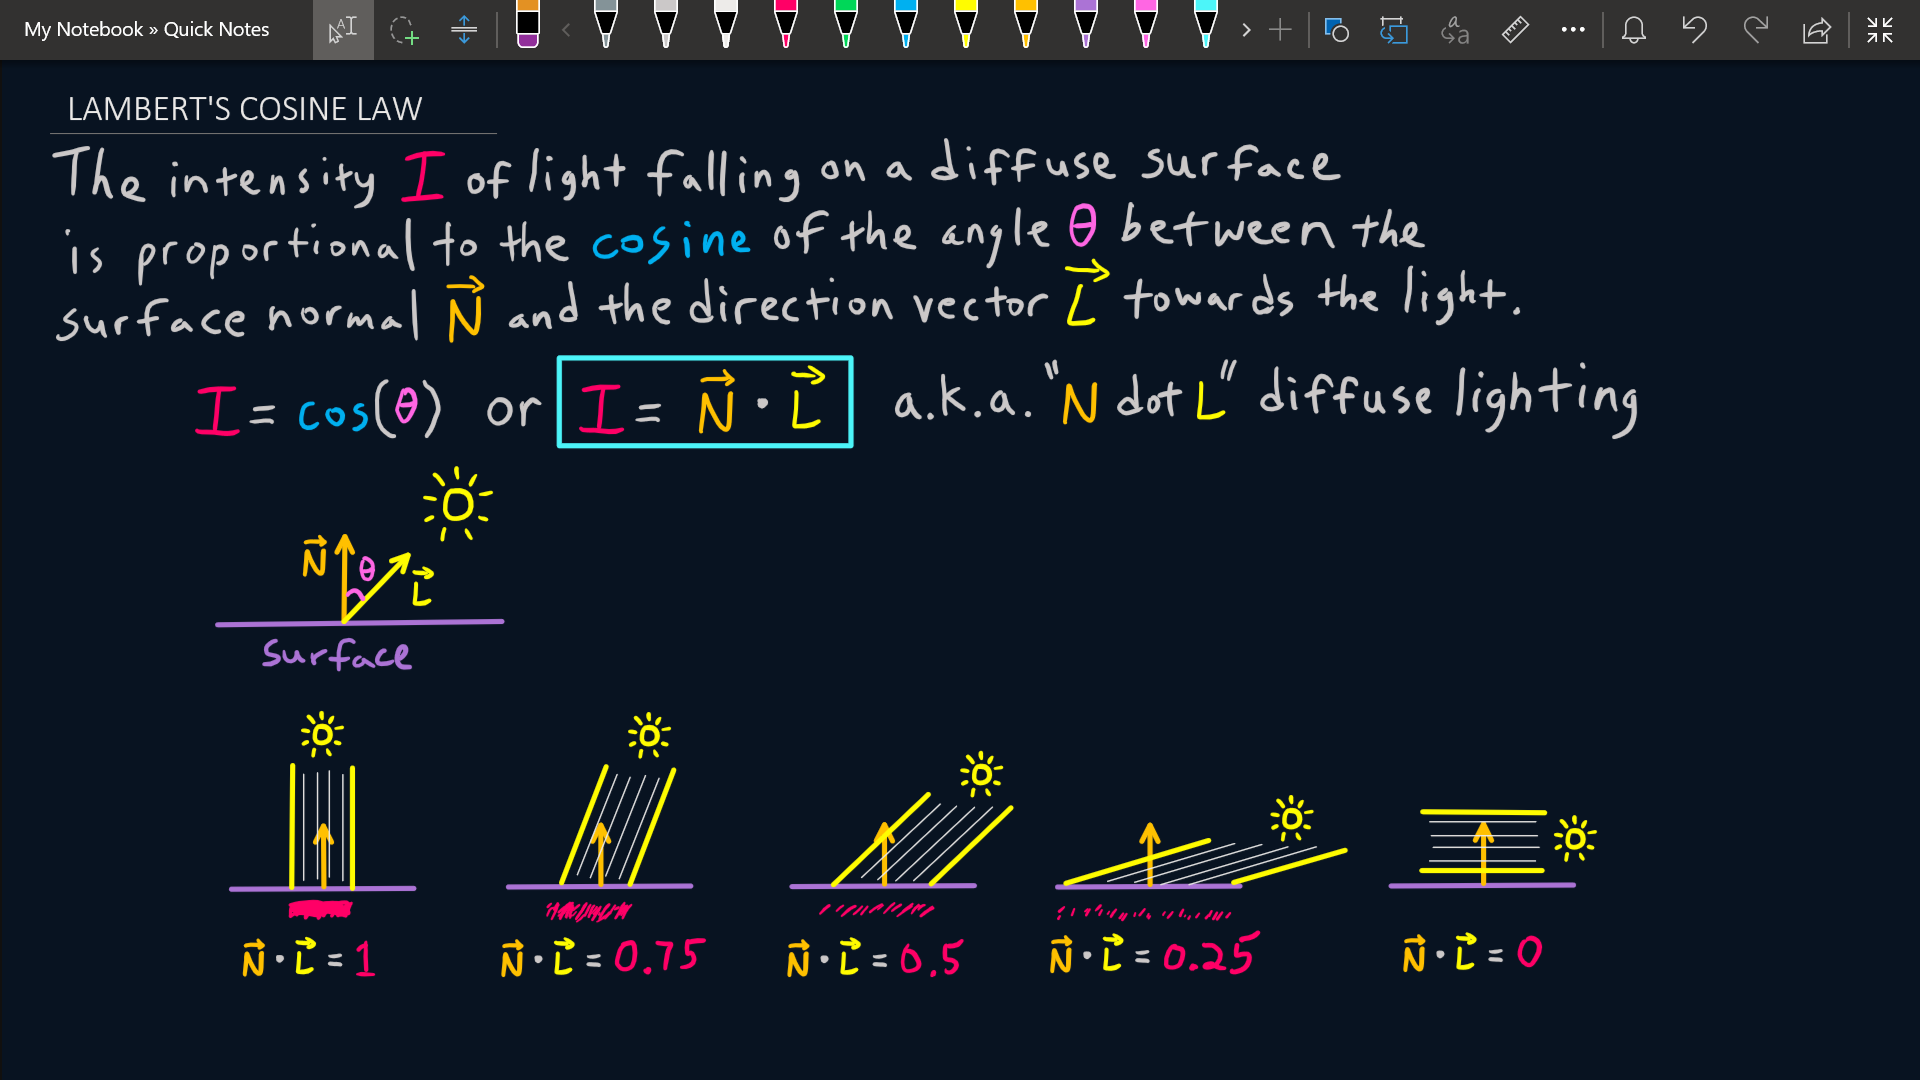 My Notebook » Quick Notes
LAMBERT'S COSINE LAW
The intensity I of light falling on a diffuse surface
is proportional to the cosine of the angle θ between the
surface normal N⃗ and the direction vector L⃗ towards the light.
I = cos(θ) or I = N⃗ · L⃗ a.k.a. "N dot L" diffuse lighting
N⃗ θ L⃗
surface
N⃗ · L⃗ = 1 N⃗ · L⃗ = 0.75 N⃗ · L⃗ = 0.5 N⃗ · L⃗ = 0.25 N⃗ · L⃗ = 0